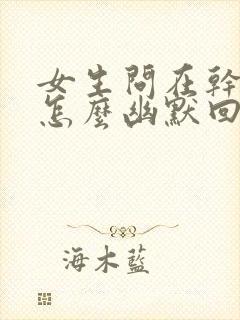 女生問在幹
怎麼幽默回
海木藍